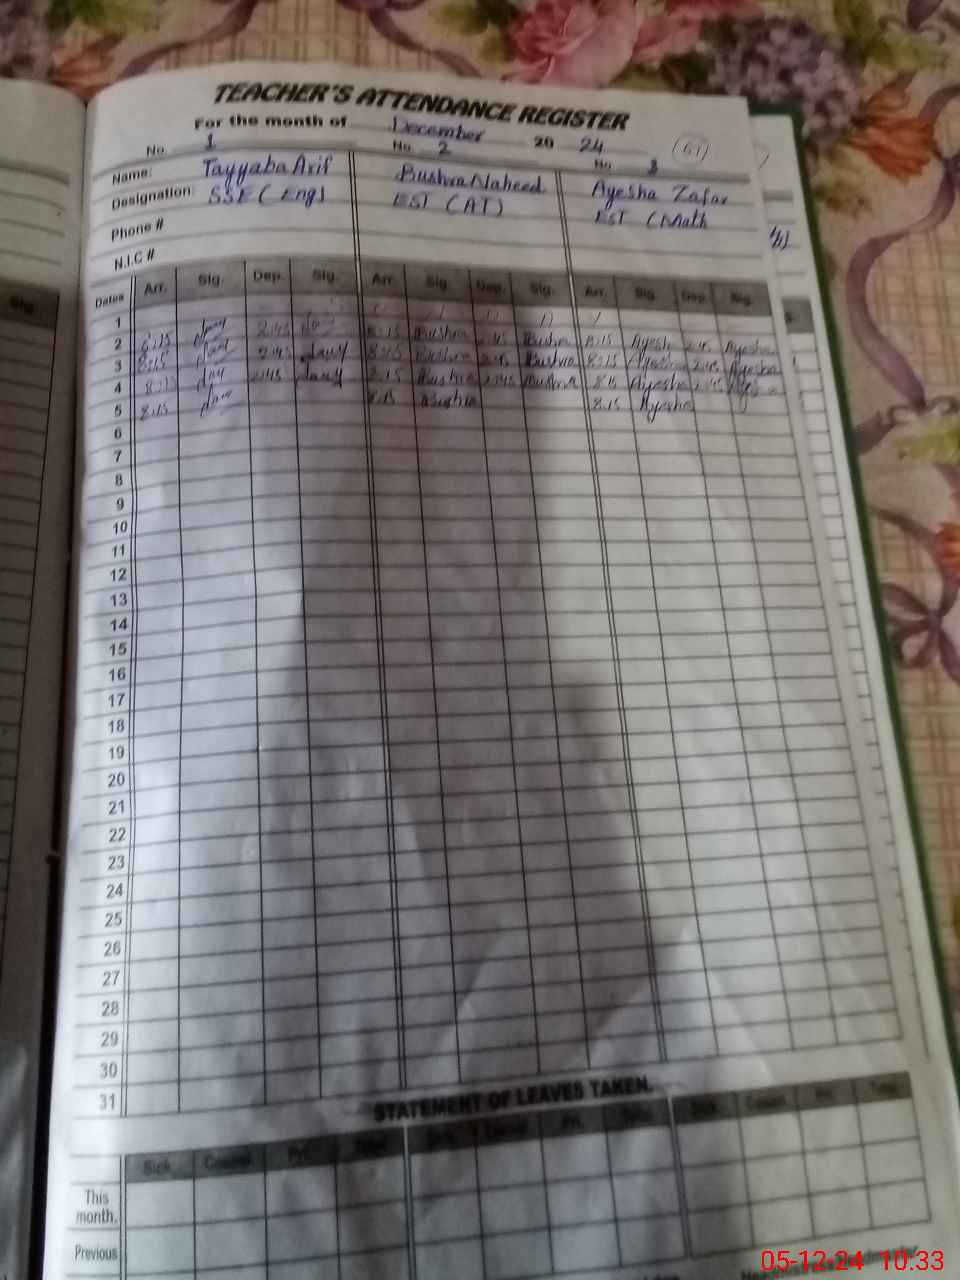 TEACHER'S ATTENDANCE REGISTER
For the month of December 20 24
No. 1 No. 2 No. 3
Name: Tayyaba Arif Bushra Naheed Ayesha Zafar
Designation: SSE (Eng) EST (AT) EST (Math
Phone #
N.I.C #
Dates Arr. Sig. Dep. Sig. Arr. Sig. Dep. Sig. Arr. Sig. Dep. Sig.
1
2 8:15 2:45 8:15 Bushra 2:45 Bushra 8:15 Ayesha 2:45 Ayesha
3 8:15 2:45 8:15 Bushra 2:45 Bushra 8:15 Ayesha 2:45 Ayesha
4 8:15 2:45 8:15 Bushra 2:45 Bushra 8:15 Ayesha 2:45
5 8:15 8:15 Bushra 8:15 Ayesha
6
7
8
9
10
11
12
13
14
15
16
17
18
19
20
21
22
23
24
25
26
27
28
29
30
31
STATEMENT OF LEAVES TAKEN.
Sick Casual Pri. Total Sick Casual Pri. Total Sick Casual Pri. Total
This
month.
Previous
05-12-24 10:33